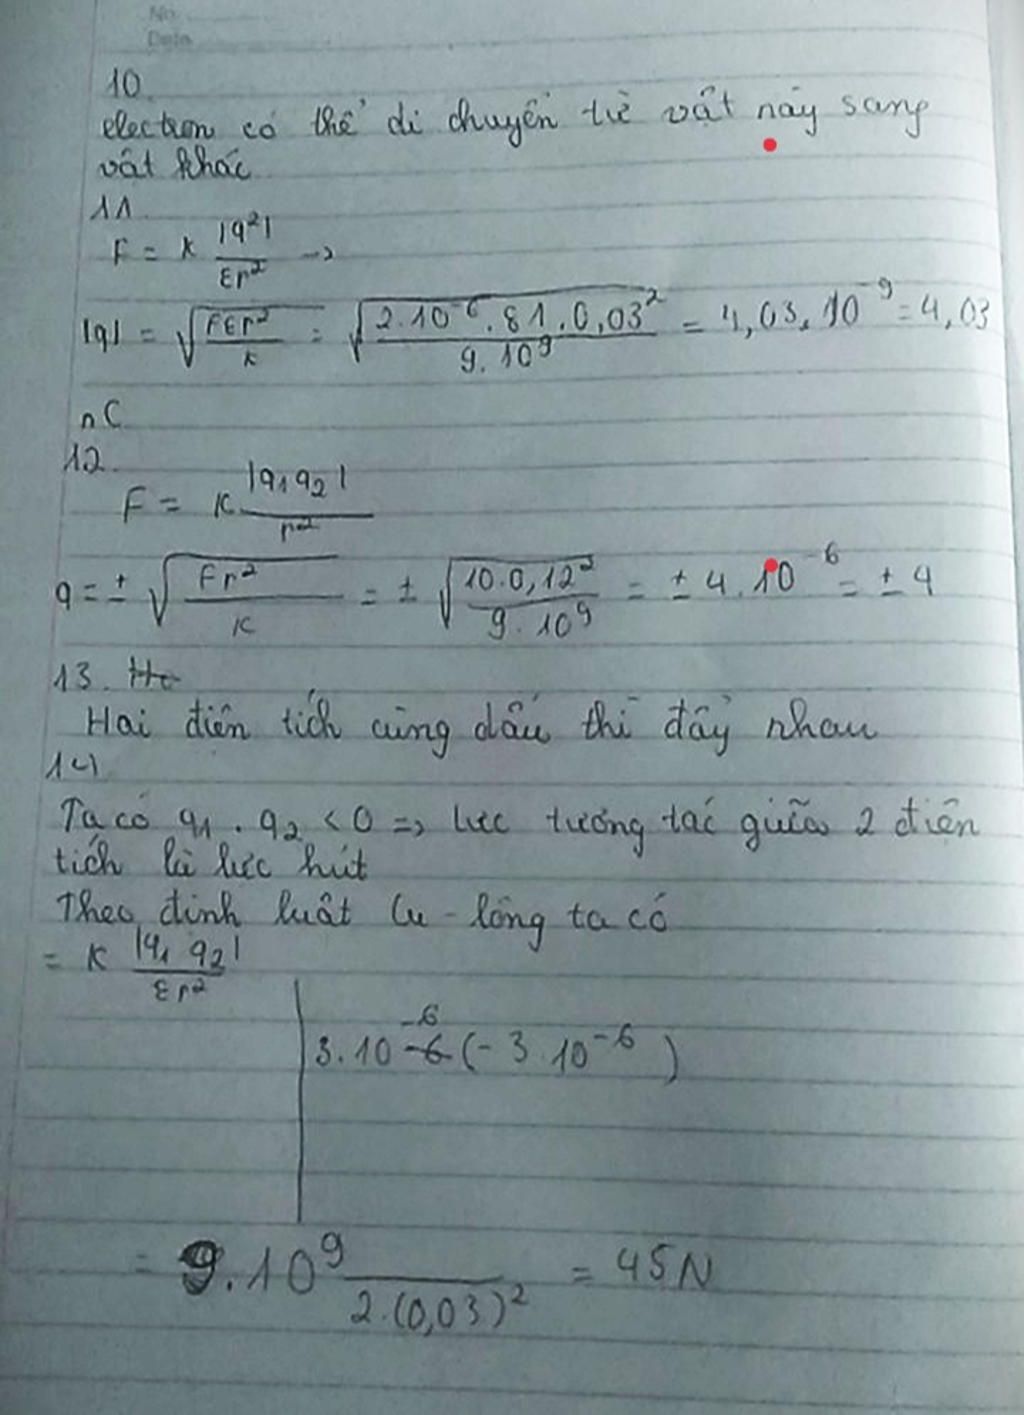 No.
Date
10.
electron có thể di chuyển từ vật này sang
vật khác
11.
F = K |q²| / εr² →
|q| = √(FEr² / K) = √(2.10⁻⁶.81.0,03² / 9.10⁹) = 4,03.10⁻⁹ = 4,03
nC
12.
F = K |q₁q₂| / r²
q = ± √(Fr² / K) = ± √(10.0,12² / 9.10⁹) = ± 4.10⁻⁶ = ± 4
13.
Hai điện tích cùng dấu thì đẩy nhau
14
Ta có q₁.q₂ < 0 => lực tương tác giữa 2 điện
tích là lực hút
Theo định luật Cu-lông ta có
= K |q₁ q₂| / εr²
3.10⁻⁶(-3.10⁻⁶)
= 9.10⁹ / 2.(0,03)² = 45N